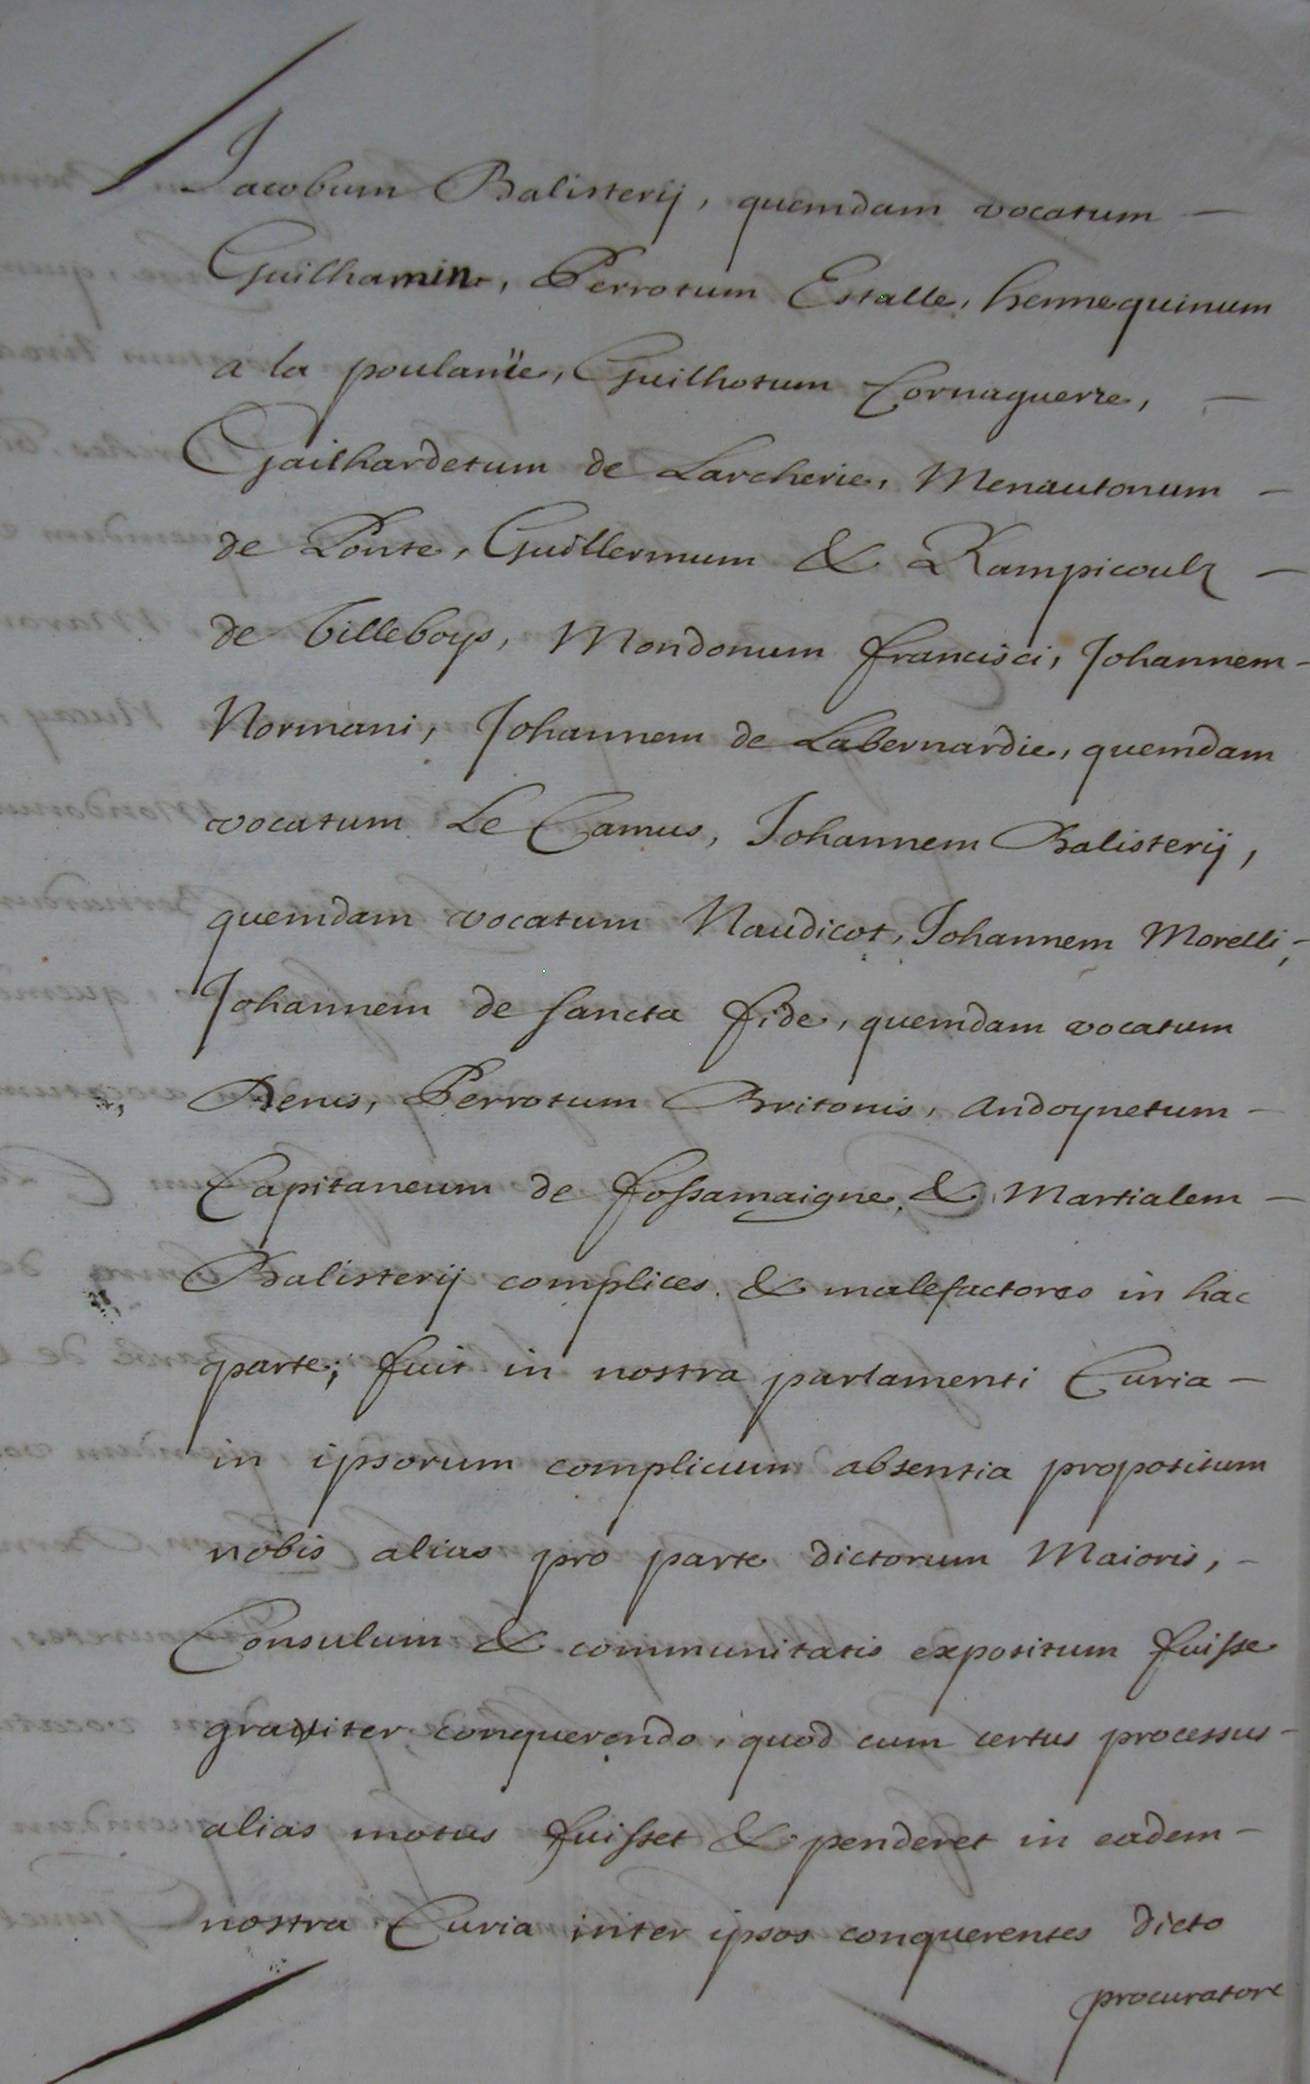 Jacobum Balisterij, quemdam vocatum —
Guilhamin, Perrotum Estalle, hennequinum
a la poulanïe, Guilhotum Cornaguerre, —
Gailhardetum de Larcherie, Menautonum —
de Ponte, Guillermum & Rampicoulz —
de Tilleboys, Mondonum francisci, Johannem -
Normani, Johannem de Labernardie, quemdam
vocatum Le Camus, Johannem Balisterij,
quemdam vocatum Naudicot, Johannem Morelli, -
Johannem de sancta fide, quemdam vocatum
Denis, Perrotum Britonis, Andoynetum —
Capitaneum de fossamaigne, & Martialem —
Balisterij complices & malefactores in hac
parte; fuit in nostra parlamenti Curia —
in ipsorum complicum absentia propositum
nobis alias pro parte dictorum Maioris, -
Consulum & communitatis expositum fuisse
graviter conquerendo, quod cum certus processus -
alias motus fuisset & penderet in eadem -
nostra Curia inter ipsos conquerentes dicto
procuratore